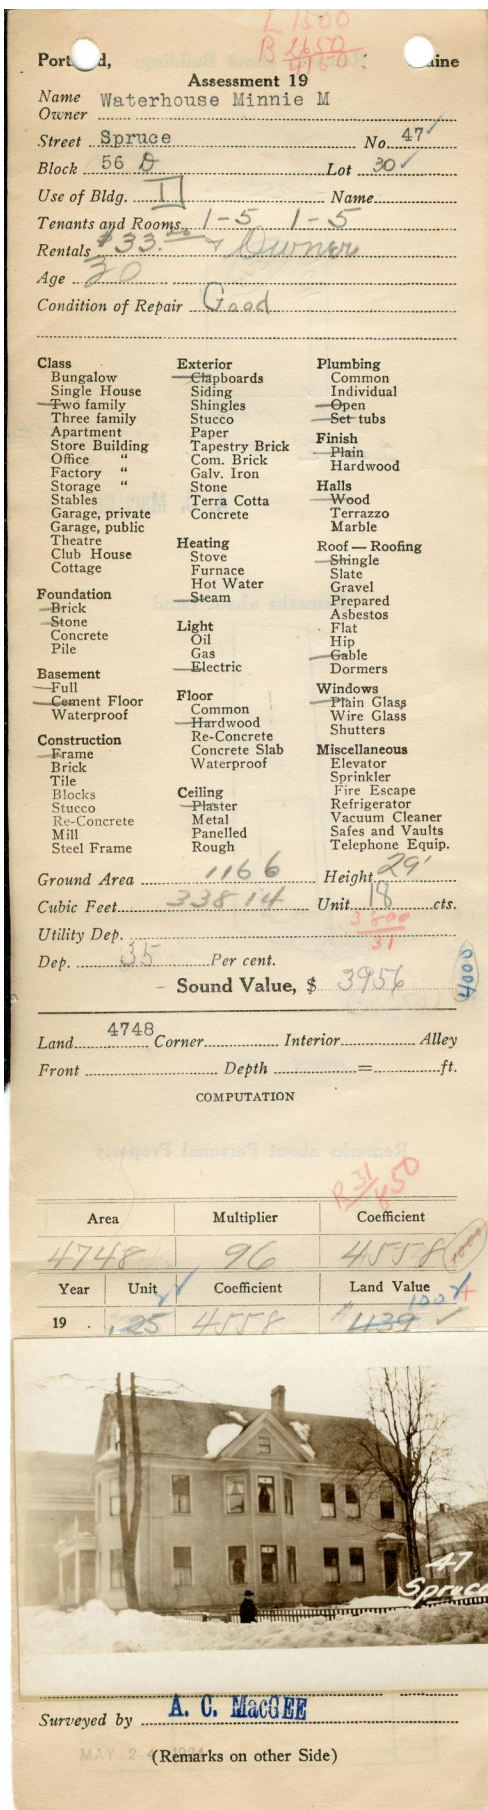 L 1300
B 2650
4150
Portland, Maine
Assessment 19
Name Waterhouse Minnie M
Owner
Street Spruce No. 47
Block 56 D Lot 30
Use of Bldg. II Name
Tenants and Rooms 1-5 1-5
Rentals $33. Owner
Age 30
Condition of Repair Good
Class
Bungalow
Single House
Two family
Three family
Apartment
Store Building
Office "
Factory "
Storage "
Stables
Garage, private
Garage, public
Theatre
Club House
Cottage
Foundation
Brick
Stone
Concrete
Pile
Basement
Full
Cement Floor
Waterproof
Construction
Frame
Brick
Tile
Blocks
Stucco
Re-Concrete
Mill
Steel Frame
Exterior
Clapboards
Siding
Shingles
Stucco
Paper
Tapestry Brick
Com. Brick
Galv. Iron
Stone
Terra Cotta
Concrete
Heating
Stove
Furnace
Hot Water
Steam
Light
Oil
Gas
Electric
Floor
Common
Hardwood
Re-Concrete
Concrete Slab
Waterproof
Ceiling
Plaster
Metal
Panelled
Rough
Plumbing
Common
Individual
Open
Set tubs
Finish
Plain
Hardwood
Halls
Wood
Terrazzo
Marble
Roof — Roofing
Shingle
Slate
Gravel
Prepared
Asbestos
Flat
Hip
Gable
Dormers
Windows
Plain Glass
Wire Glass
Shutters
Miscellaneous
Elevator
Sprinkler
Fire Escape
Refrigerator
Vacuum Cleaner
Safes and Vaults
Telephone Equip.
Ground Area 1166 Height 29'
Cubic Feet 33814 Unit 18 cts.
3800
31
Utility Dep.
Dep. 35 Per cent.
Sound Value, $ 3956
4000
Land 4748 Corner Interior Alley
Front Depth = ft.
COMPUTATION
R 31/850
Area Multiplier Coefficient
4748 96 4558
Year Unit Coefficient Land Value
19 .25 4558 $1139
47
Spruce
Surveyed by A. C. MacGEE
MAY 24
(Remarks on other Side)